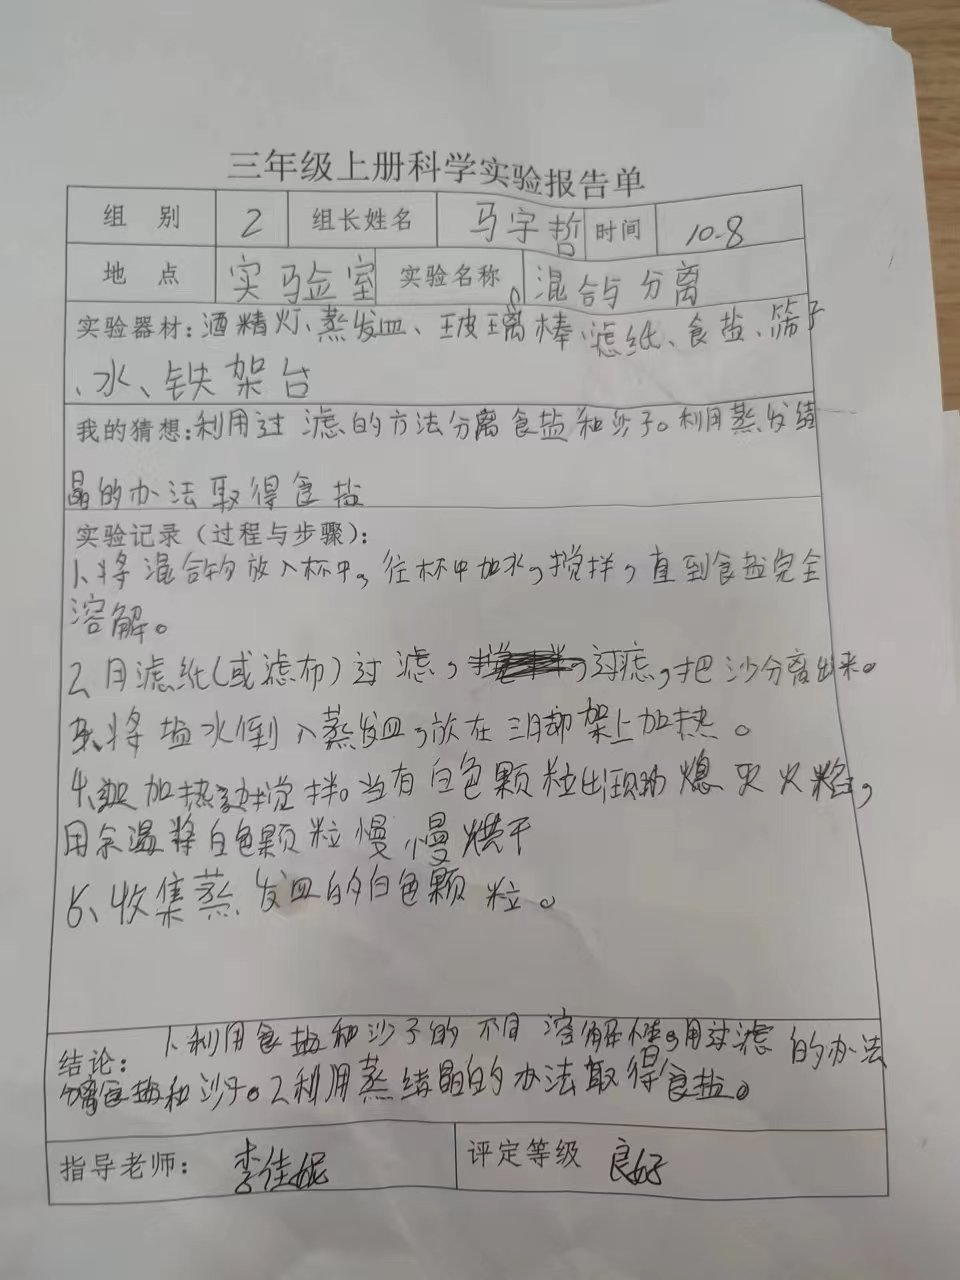 三年级上册科学实验报告单
组 别 2 组长姓名 马宇哲 时间 10-8
地 点 实验室 实验名称 混合与分离
实验器材：酒精灯、蒸发皿、玻璃棒、滤纸、食盐、筛子
、水、铁架台
我的猜想：利用过滤的方法分离食盐和沙子。利用蒸发结
晶的办法取得食盐
实验记录（过程与步骤）：
1、将混合物放入杯中，往杯中加水，搅拌，直到食盐完全
溶解。
2、月滤纸（或滤布）过滤，过滤，把沙分离出来。
3、将盐水倒入蒸发皿，放在三月却架上加热。
4、边加热边搅拌。当有白色颗粒出现时熄灭火焰，
用余温将白色颗粒慢慢烘干
5、收集蒸发皿的白色颗粒。
结论：1、利用食盐和沙子的不同溶解性，用过滤的办法
分离食盐和沙子。2利用蒸结晶的办法取得食盐。
指导老师：李佳妮 评定等级 良好